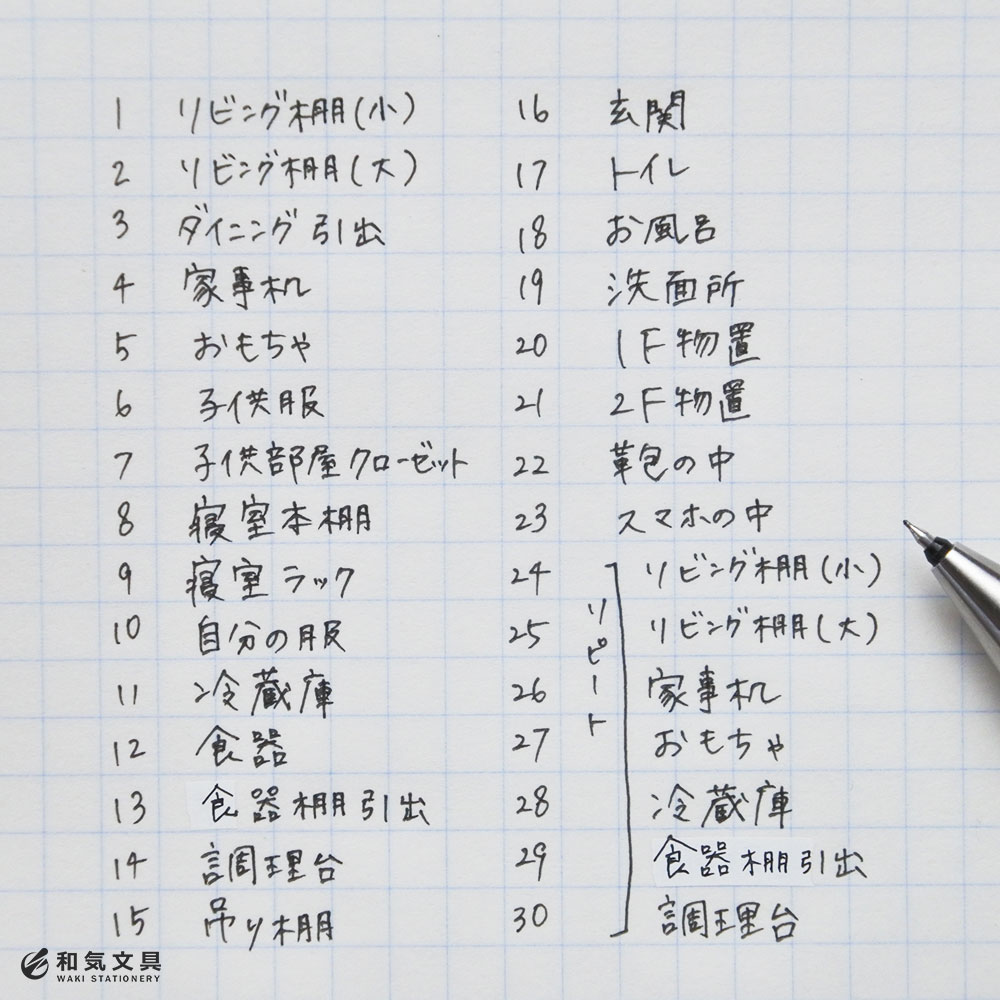 1 リビング棚(小)
2 リビング棚(大)
3 ダイニング引出
4 家事机
5 おもちゃ
6 子供服
7 子供部屋クローゼット
8 寝室本棚
9 寝室ラック
10 自分の服
11 冷蔵庫
12 食器
13 食器棚引出
14 調理台
15 吊り棚
16 玄関
17 トイレ
18 お風呂
19 洗面所
20 1F物置
21 2F物置
22 革包の中
23 スマホの中
リピート
24 リビング棚(小)
25 リビング棚(大)
26 家事机
27 おもちゃ
28 冷蔵庫
29 食器棚引出
30 調理台
和気文具
WAKI STATIONERY